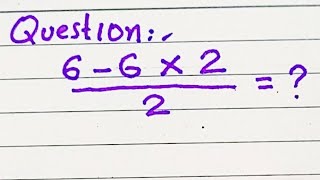 Question:-
6 - 6 × 2
2
= ?